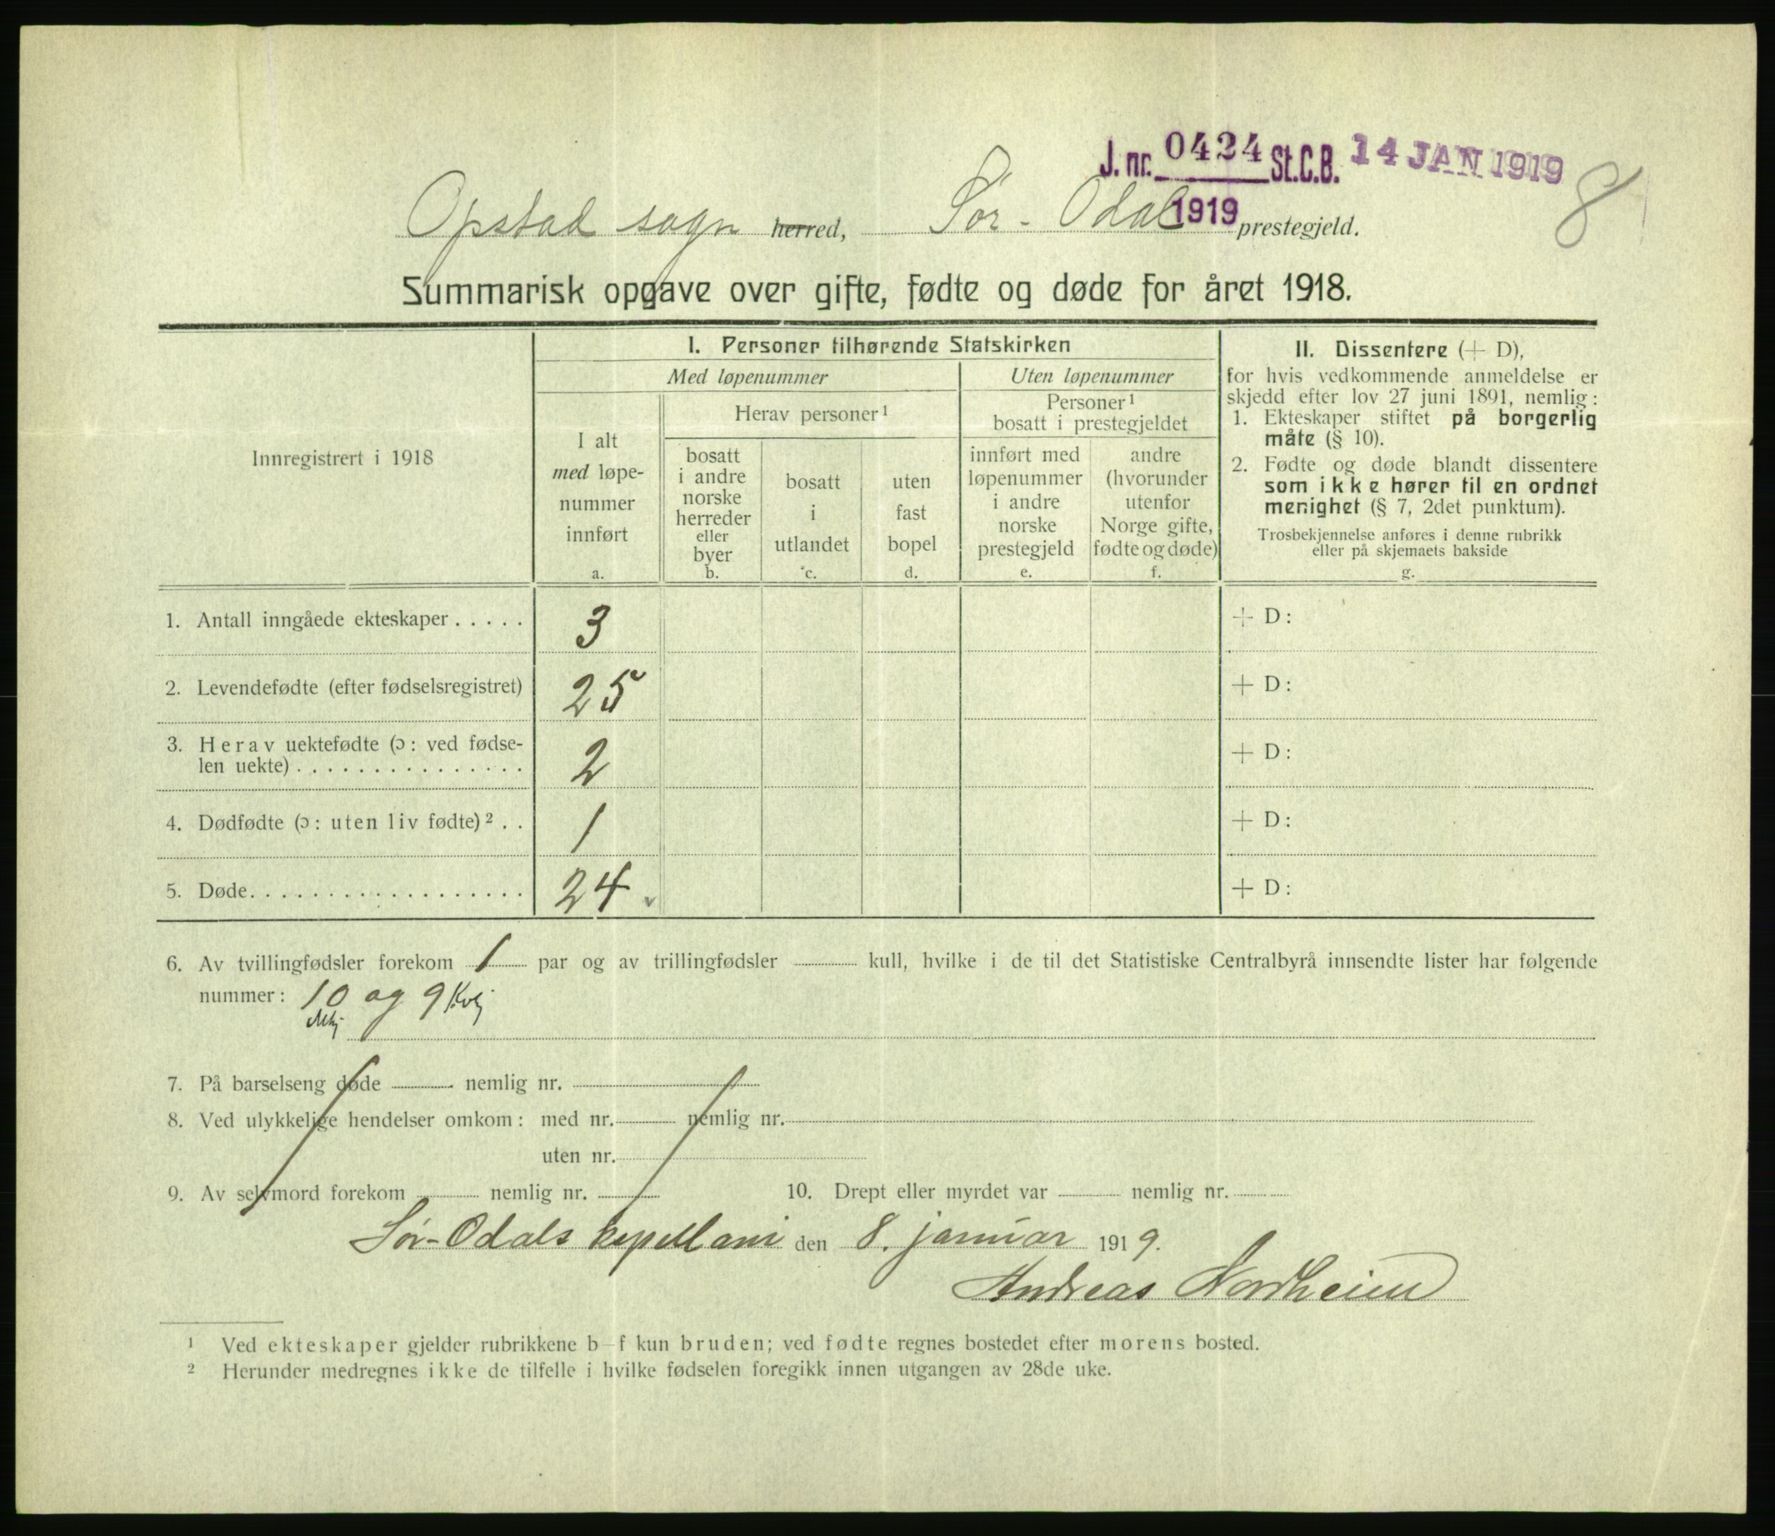 J. nr. 0424 St.C.B. 14 JAN 1919
1919
8
Opstad sogn herred, Sør-Odal prestegjeld.
Summarisk opgave over gifte, fødte og døde for året 1918.
Innregistrert i 1918
I. Personer tilhørende Statskirken
Med løpenummer
Uten løpenummer
I alt
med løpe-
nummer
innført
a.
Herav personer¹
bosatt
i andre
norske
herreder
eller
byer
b.
bosatt
i
utlandet
c.
uten
fast
bopel
d.
Personer¹
bosatt i prestegjeldet
innført med
løpenummer
i andre
norske
prestegjeld
e.
andre
(hvorunder
utenfor
Norge gifte,
fødte og døde)
f.
II. Dissentere (+ D),
for hvis vedkommende anmeldelse er
skjedd efter lov 27 juni 1891, nemlig:
1. Ekteskaper stiftet på borgerlig
måte (§ 10).
2. Fødte og døde blandt dissentere
som ikke hører til en ordnet
menighet (§ 7, 2det punktum).
Trosbekjennelse anføres i denne rubrikk
eller på skjemaets bakside
g.
1. Antall inngåede ekteskaper . . . . . 3 + D:
2. Levendefødte (efter fødselsregistret) 25 + D:
3. Herav uektefødte (ɔ: ved fødse-
len uekte) . . . . . . . . . . . . . . . 2 + D:
4. Dødfødte (ɔ: uten liv fødte)² . . 1 + D:
5. Døde. . . . . . . . . . . . . . . . . . 24 + D:
6. Av tvillingfødsler forekom 1 par og av trillingfødsler kull, hvilke i de til det Statistiske Centralbyrå innsendte lister har følgende
nummer: 10 og 9 Kvkj
Mkj.
7. På barselseng døde nemlig nr.
8. Ved ulykkelige hendelser omkom: med nr. nemlig nr.
uten nr.
9. Av selvmord forekom nemlig nr. 10. Drept eller myrdet var nemlig nr.
Sør-Odals kapellani den 8. januar 1919.
Andreas Nordheim
¹ Ved ekteskaper gjelder rubrikkene b–f kun bruden; ved fødte regnes bostedet efter morens bosted.
² Herunder medregnes ikke de tilfelle i hvilke fødselen foregikk innen utgangen av 28de uke.